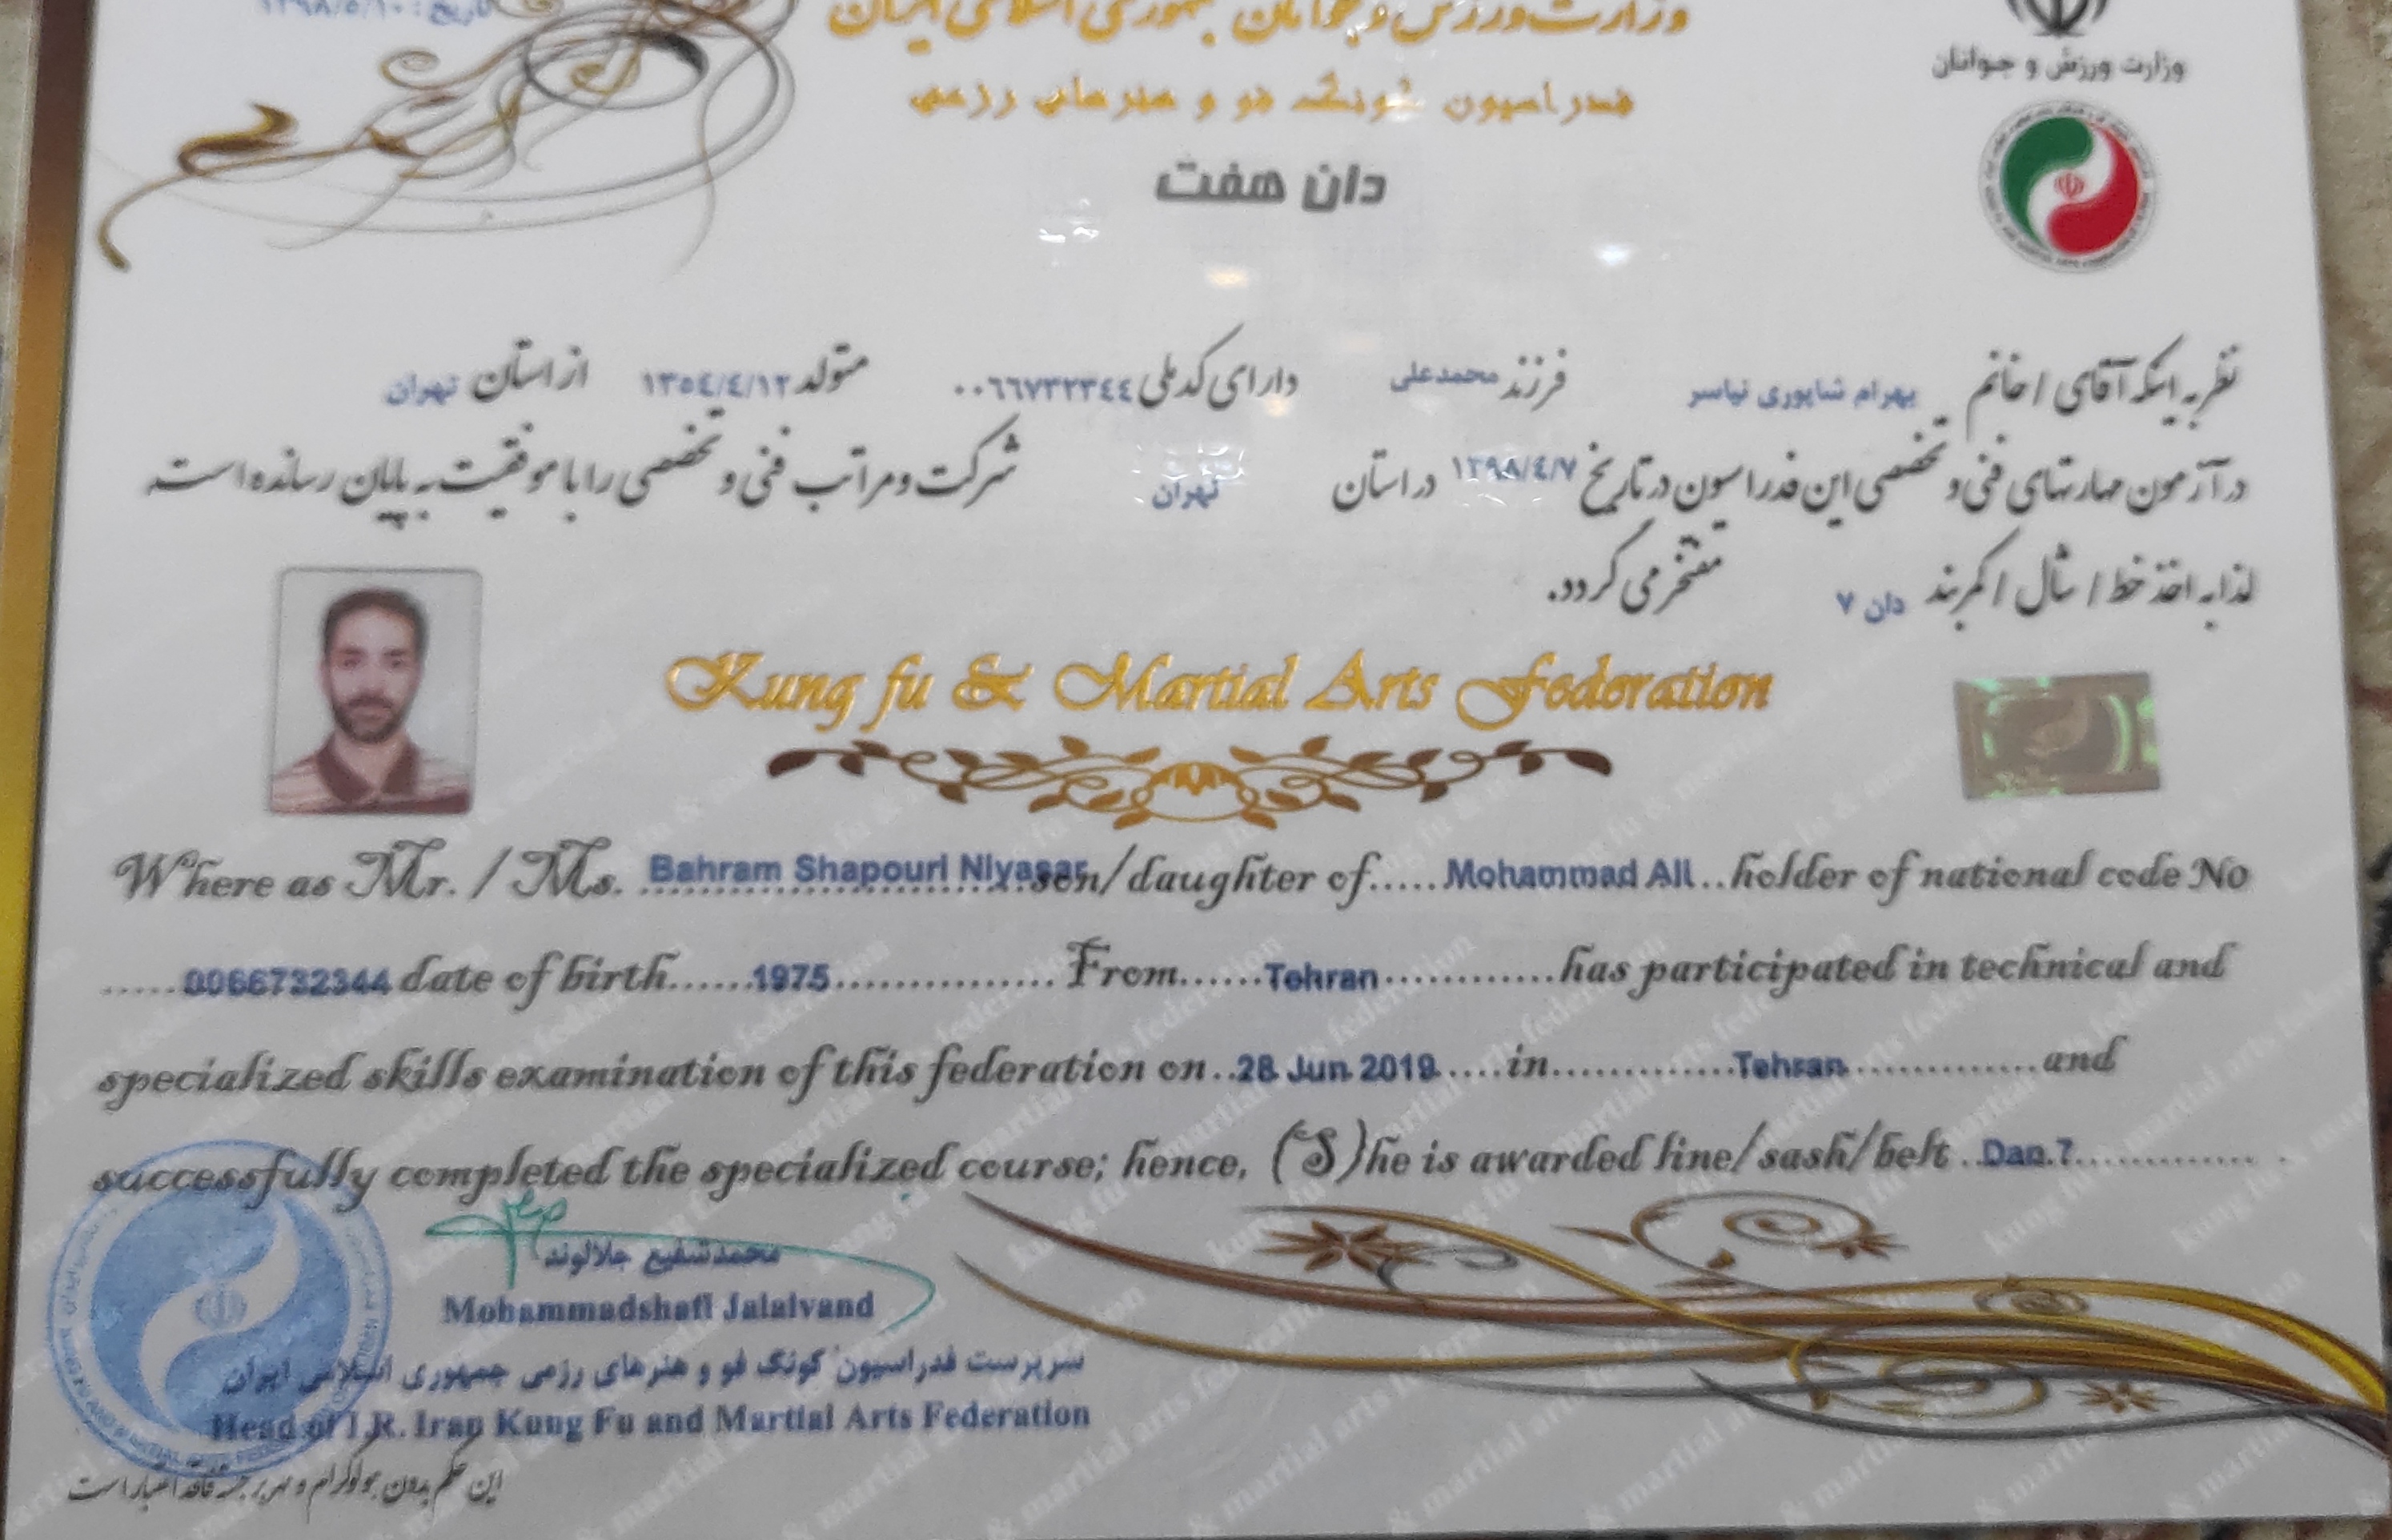 تاریخ: ۱۳۹۸/۵/۱۰
وزارت ورزش و جوانان جمهوری اسلامی ایران
وزارت ورزش و جوانان
فدراسیون کونگ فو و هنرهای رزمی
دان هفت
نظر به اینکه آقای / خانم بهرام شاپوری نیاسر فرزند محمدعلی دارای کد ملی ۰۰٦٦٧٣٢٣٤٤ متولد ١٣٥٤/٤/١٢ از استان تهران
در آزمون مهارتهای فنی و تخصصی این فدراسیون در تاریخ ١٣٩٨/٤/٧ در استان تهران شرکت و مراتب فنی و تخصصی را با موفقیت به پایان رسانده است
لذا به اخذ خط / شال / کمربند دان ٧ مفتخر می گردد.
Kung fu & Martial Arts Federation
Where as Mr. / Ms. Bahram Shapouri Niyasar son/daughter of.....Mohammad Ali..holder of national code No
.....0066732344 date of birth......1975................ From......Tehran............has participated in technical and
specialized skills examination of this federation on..28 Jun 2019....in.............Tehran..............and
successfully completed the specialized course; hence, (S)he is awarded line/sash/belt ..Dan.7..............
محمدشفیع جلالوند
Mohammadshafi Jalalvand
سرپرست فدراسیون کونگ فو و هنرهای رزمی جمهوری اسلامی ایران
Head of I.R. Iran Kung Fu and Martial Arts Federation
این حکم بدون هولوگرام و مهر برجسته فاقد اعتبار است